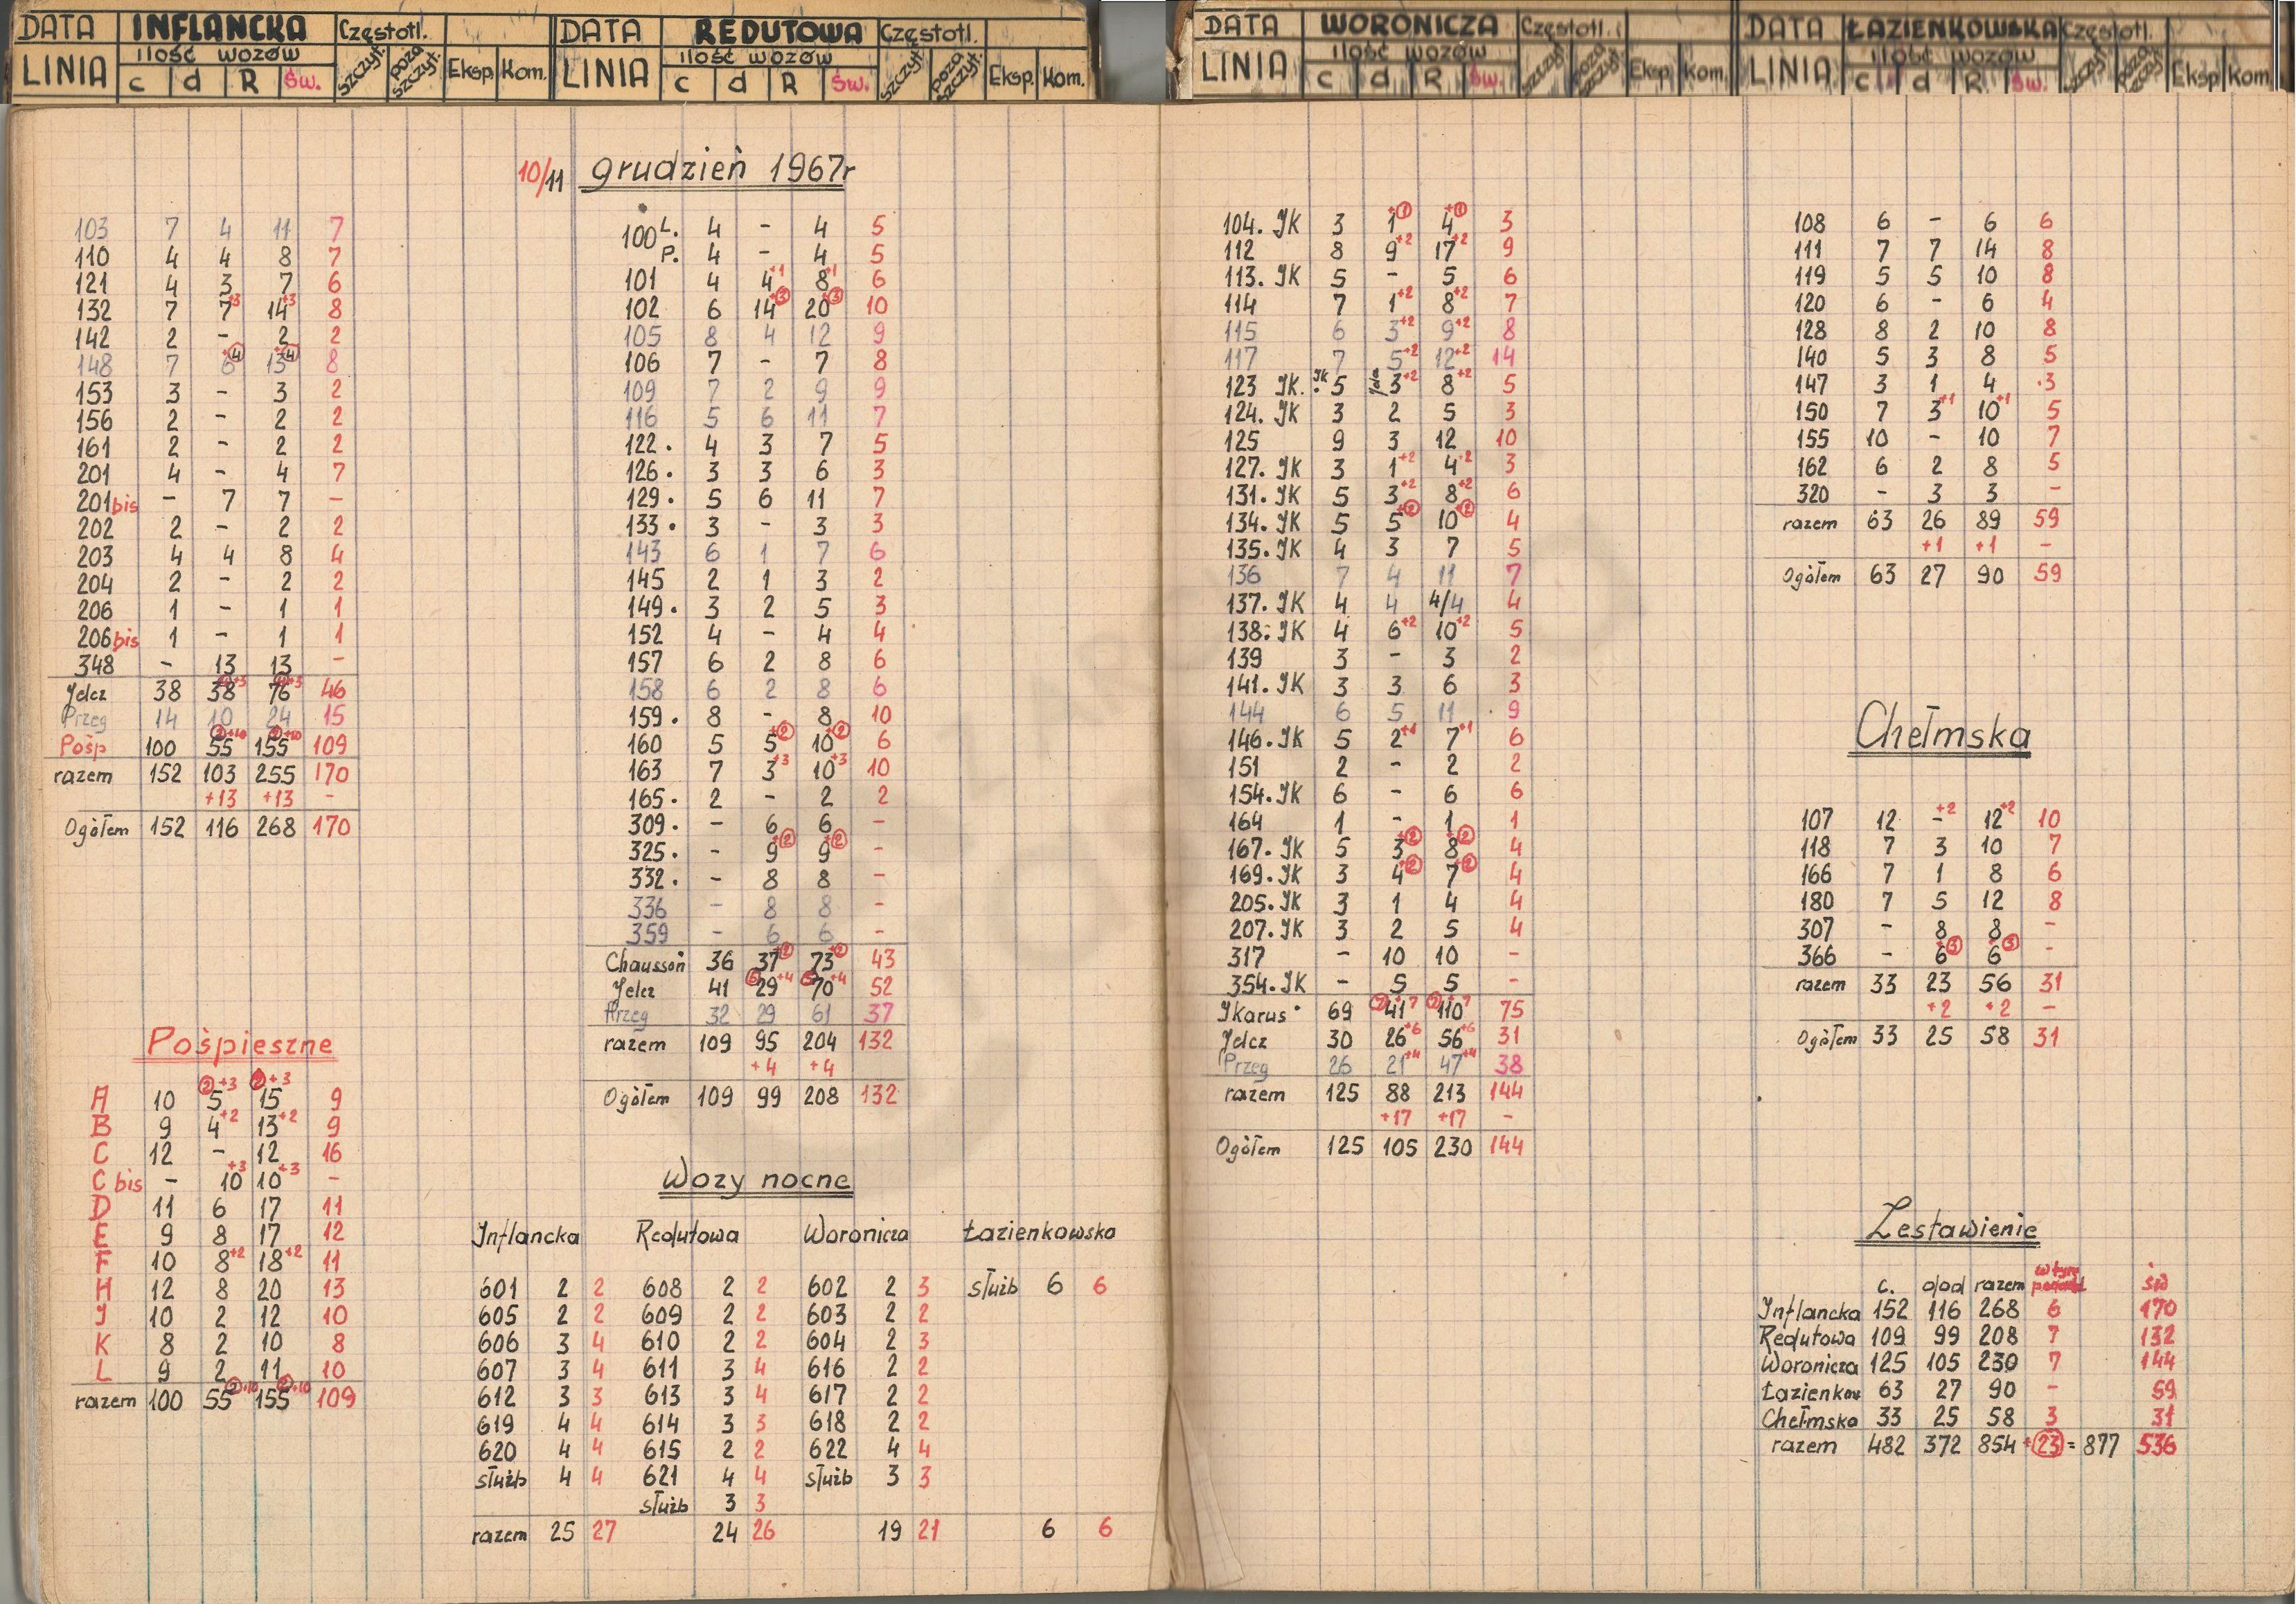 DATA INFLANCKA Częstotl.
LINIA ilość wozów szczyt. poza szczyt. Eksp. Kom.
c d R Św.
DATA REDUTOWA Częstotl.
LINIA ilość wozów szczyt. poza szczyt. Eksp. Kom.
c d R Św.
DATA WORONICZA Częstotl.
LINIA ilość wozów szczyt. poza szczyt. Eksp. Kom.
c d R Św.
DATA ŁAZIENKOWSKA Częstotl.
LINIA ilość wozów szczyt. poza szczyt. Eksp. Kom.
c d R Św.
10/11 grudzień 1967r
103 7 4 11 7
110 4 4 8 7
121 4 3 7 6
132 7 7+3 14+3 8
142 2 - 2 2
148 7 6+4 13+4 8
153 3 - 3 2
156 2 - 2 2
161 2 - 2 2
201 4 - 4 7
201bis - 7 7 -
202 2 - 2 2
203 4 4 8 4
204 2 - 2 2
206 1 - 1 1
206bis 1 - 1 1
348 - 13 13 -
Jelcz 38 38 +3 76 +3 46
Przeg 14 10 24 15
Pośp 100 55 2+10 155 2+10 109
razem 152 103 255 170
+13 +13 -
Ogółem 152 116 268 170
Pośpieszne
A 10 5 2+3 15 2+3 9
B 9 4+2 13+2 9
C 12 - 12 16
C bis - 10+3 10+3 -
D 11 6 17 11
E 9 8 17 12
F 10 8+2 18+2 11
H 12 8 20 13
J 10 2 12 10
K 8 2 10 8
L 9 2 11 10
razem 100 55 2+10 155 2+10 109
100 L. 4 - 4 5
P. 4 - 4 5
101 4 4+1 8+1 6
102 6 14+3 20+3 10
105 8 4 12 9
106 7 - 7 8
109 7 2 9 9
116 5 6 11 7
122. 4 3 7 5
126. 3 3 6 3
129. 5 6 11 7
133. 3 - 3 3
143 6 1 7 6
145 2 1 3 2
149. 3 2 5 3
152 4 - 4 4
157 6 2 8 6
158 6 2 8 6
159. 8 - 8 10
160 5 5+2 10+2 6
163 7 3+3 10+3 10
165. 2 - 2 2
309. - 6 6 -
325. - 9+2 9+2 -
332. - 8 8 -
336 - 8 8 -
359 - 6 6 -
Chausson 36 37+2 73+2 43
Jelcz 41 5 29+4 5 70+4 52
Przeg 32 29 61 37
razem 109 95 204 132
+4 +4
Ogółem 109 99 208 132
Wozy nocne
Inflancka Redutowa Woronicza Łazienkowska
601 2 2 608 2 2 602 2 3 służb 6 6
605 2 2 609 2 2 603 2 2
606 3 4 610 2 2 604 2 3
607 3 4 611 3 4 616 2 2
612 3 3 613 3 4 617 2 2
619 4 4 614 3 3 618 2 2
620 4 4 615 2 2 622 4 4
służb 4 4 621 4 4 służb 3 3
służb 3 3
razem 25 27 24 26 19 21 6 6
104. JK 3 1+1 4+1 3
112 8 9+2 17+2 9
113. JK 5 - 5 6
114 7 1+2 8+2 7
115 6 3+2 9+2 8
117 7 5+2 12+2 14
123 JK. JK 5 3+2 8+2 5
124. JK 3 2 5 3
125 9 3 12 10
127. JK 3 1+2 4+2 3
131. JK 5 3+2 8+2 6
134. JK 5 5+2 10+2 4
135. JK 4 3 7 5
136 7 4 11 7
137. JK 4 4 4/4 4
138. JK 4 6+2 10+2 5
139 3 - 3 2
141. JK 3 3 6 3
144 6 5 11 9
146. JK 5 2+1 7+1 6
151 2 - 2 2
154. JK 6 - 6 6
164 1 - 1 1
167. JK 5 3+2 8+2 4
169. JK 3 4+2 7+2 4
205. JK 3 1 4 4
207. JK 3 2 5 4
317 - 10 10 -
354. JK - 5 5 -
Ikarus 69 7 41+7 7 110+7 75
Jelcz 30 26+6 56+6 31
Przeg 26 21+4 47+4 38
razem 125 88 213 144
+17 +17 -
Ogółem 125 105 230 144
108 6 - 6 6
111 7 7 14 8
119 5 5 10 8
120 6 - 6 4
128 8 2 10 8
140 5 3 8 5
147 3 1 4 .3
150 7 3+1 10+1 5
155 10 - 10 7
162 6 2 8 5
320 - 3 3 -
razem 63 26 89 59
+1 +1 -
Ogółem 63 27 90 59
Chełmska
107 12 -+2 12+2 10
118 7 3 10 7
166 7 1 8 6
180 7 5 12 8
307 - 8 8 -
366 - 6+3 6+3 -
razem 33 23 56 31
+2 +2 -
Ogółem 33 25 58 31
Zestawienie
c. dod razem w tym św
Inflancka 152 116 268 6 170
Redutowa 109 99 208 7 132
Woronicza 125 105 230 7 144
Łazienkow 63 27 90 - 59
Chełmska 33 25 58 3 31
razem 482 372 854 +23 = 877 536